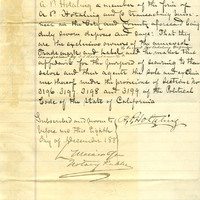 A. P. Hotaling a member of the firm of
A. P. Hotaling & Co transacting busi-
ness in the City and County aforesaid being
duly sworn deposes and says: That they
are the exclusive owners of the annexed
Trade mark and label, and he makes this
affidavit for the purpose of securing to them-
selves and their agents the sole and exclusive
use thereof under the provisions of Sections No
3196 3197 3198 and 3199 of the Political
Code of the State of California
Subscribed and sworn to
before me this Eighth
Day of December 188
A P Hotaling
Notary Public